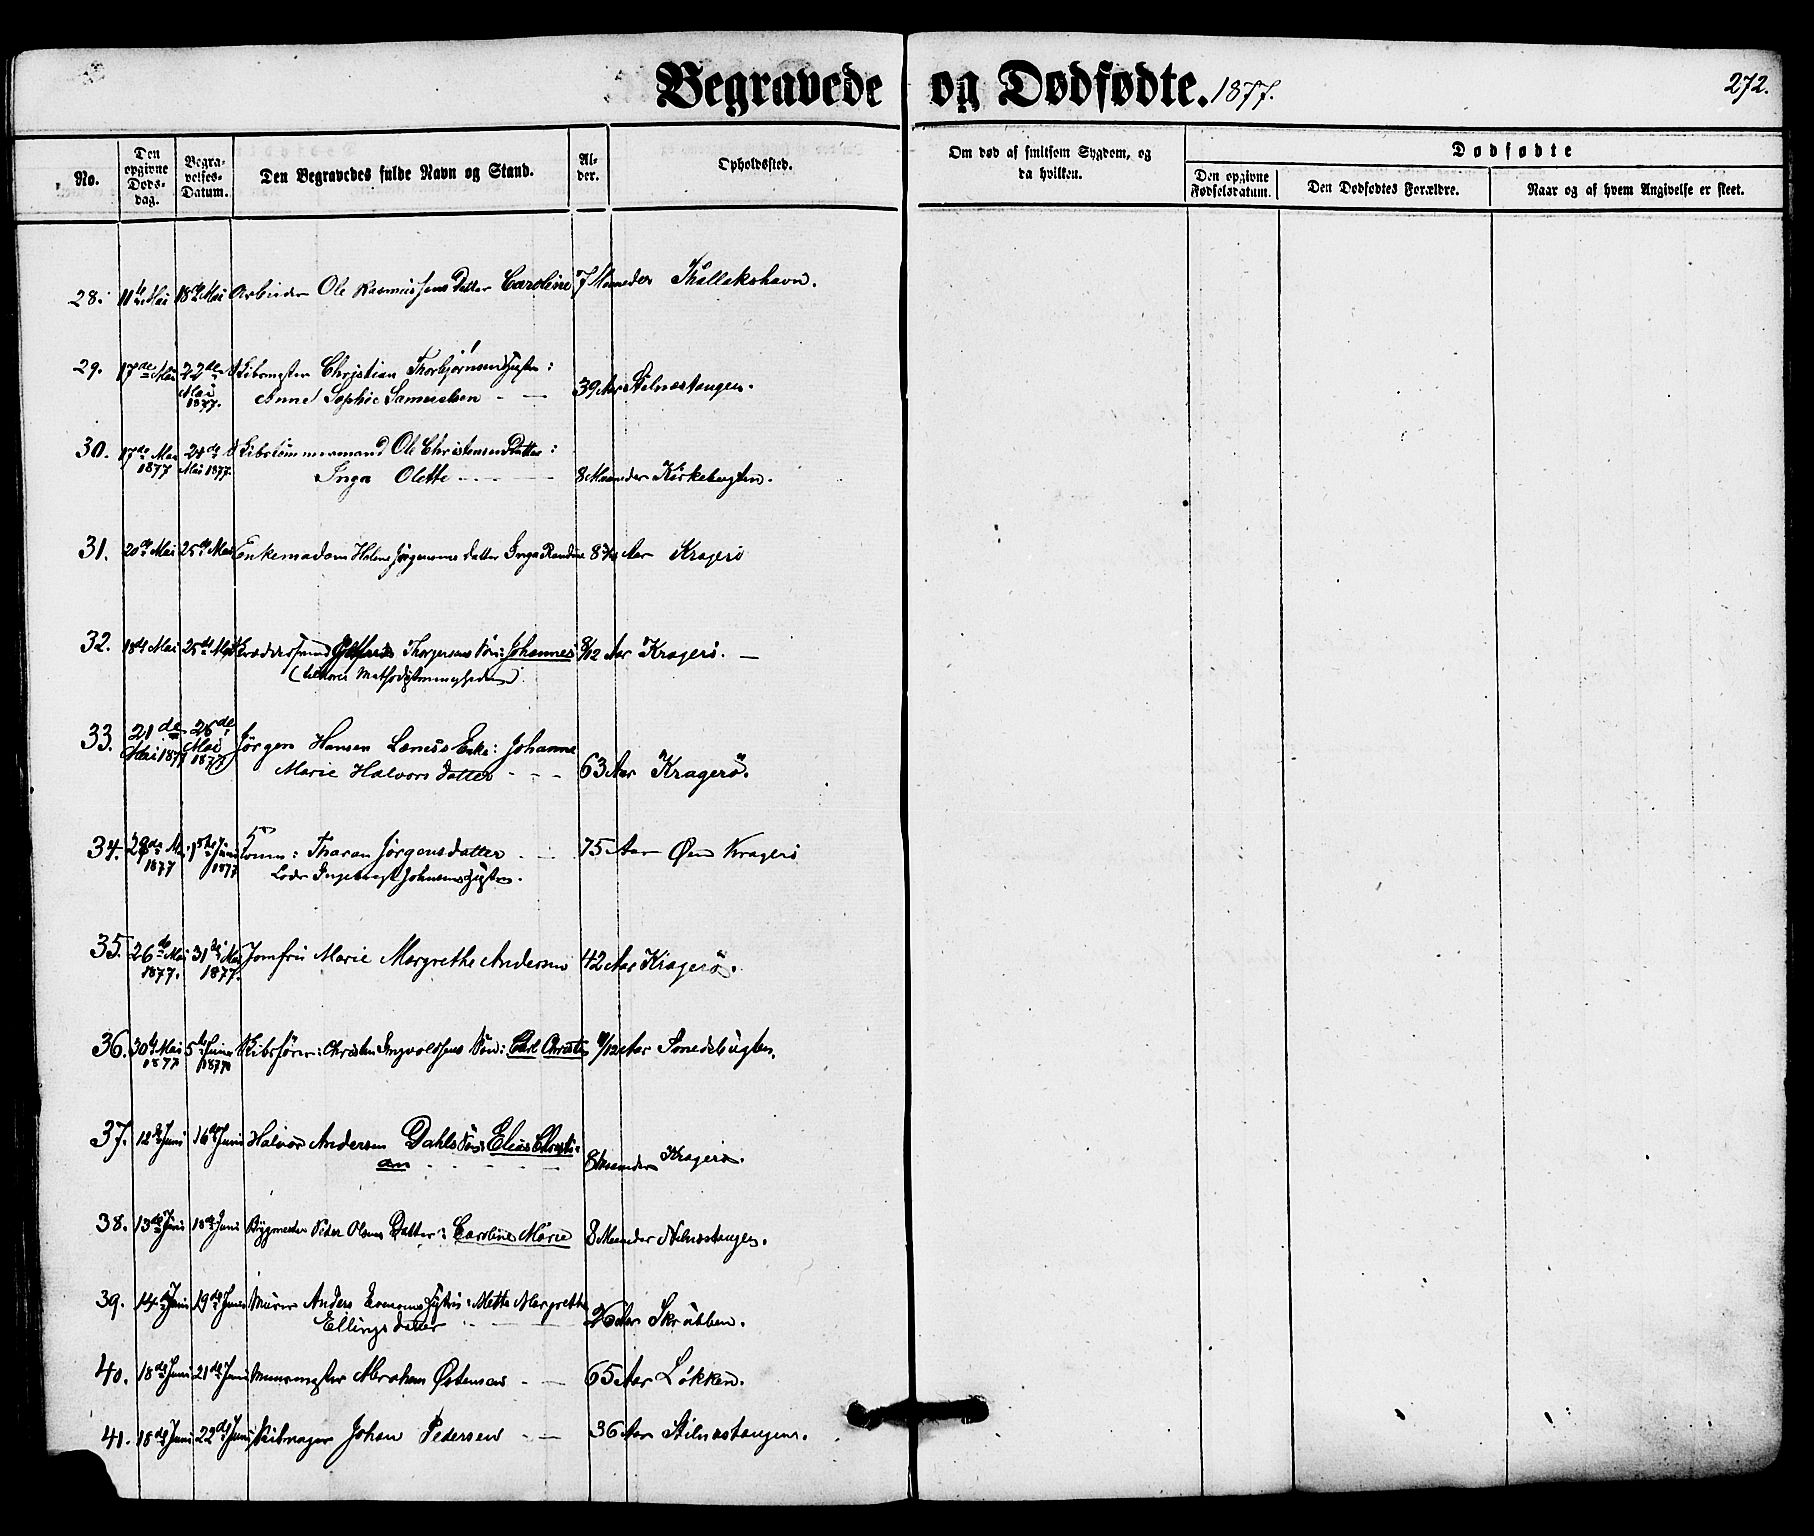 Begravede og Dødfødte. 1877. 272.
No. Den opgivne Døds-dag. Begra-velses-Datum. Den Begravedes fulde Navn og Stand. Al-der. Opholdssted. Om død af smitsom Sygdom, og da hvilken. Dødfødte
Den opgivne Fødselsdatum. Den Dødfødtes Forældre. Naar og af hvem Angivelse er skeet.
28. 11te Mai 18de Mai Arbeider Ole Rasmussens Datter Caroline 7 Maaneder Thallakshavn.
29. 17de Mai 22de Mai 1877. Skibsmester Christian Thorbjørnsens Hustru:
Anne Sophie Samuelsen - — 39 Aar Stilnæstangen.
30. 17de Mai 1877 24de Mai 1877. Skibstømmermand Ole Christensens Datter:
Inga Olette - - - — 8 Maaneder Kirkebugten.
31. 20de Mai 25de Mai Enkemadam Helene Jørgensens datter Inga Randine 8 Aar Kragerö
32. 18de Mai 25de Mai Thorgersens Sön: Johannes 8/12 Aar Kragerö. —
33. 21de Mai 1877 26de Mai 1877 Jörgen Hansen Enke: Johanne
Marie Halvorsdatter - - - 63 Aar Kragerö.
34. 1877 1ste Juni 1877 Tharan Jörgensdatter - — 75 Aar Øen Kragerö
Lods Ingebregt Johnsens Hustru.
35. 26de Mai 1877. 31te Mai 1877. Jomfru Marie Margrethe Andersen 42 Aar Kragerö.
36. 30te Mai 1877 5te Juni 1877 Skibsförer: Christen Ingvoldsens Sön: Carl Christi /12 Aar Smedsbugten.
37. 12te Juni 16de Juni Halvor Andersen Dahls Sön: Elias Christi=
an - - - — 8 Maaneder Kragerö.
38. 13de Juni 18de Juni Bygmester Peder Olsens Datter: Caroline Marie 8 Maaneder Stilnæstangen.
39. 14de Juni 19de Juni Murer Anders Evensens Hustru: Mette Margrethe
Ellingsdatter - — 26 Aar Skrubben.
40. 18de Juni 21de Juni Murmester Abraham Østensen - — 65 Aar Løkken.
41. 18de Juni 22de Juni Johan Pedersen - — 36 Aar Stilnæstangen.